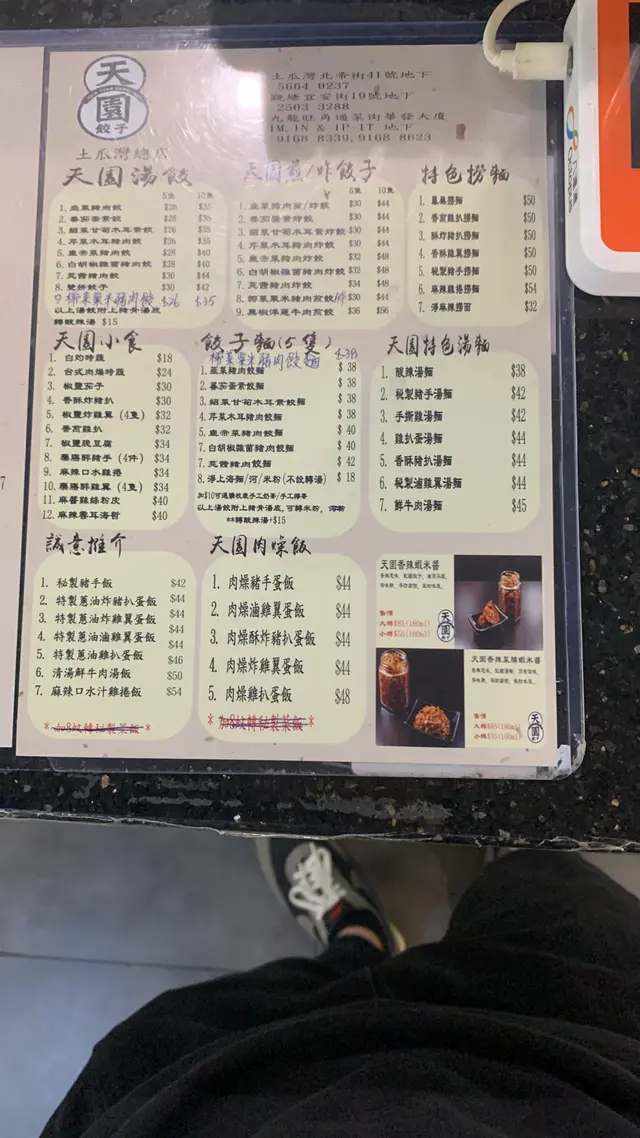 天園
餃子
土瓜灣總店
土瓜灣北帝街41號地下
5604 0237
觀塘宜安街19號地下
2503 3288
九龍旺角通菜街華發大廈
1M,1N & 1P-1T 地下
9168 8339,9168 8623
天園湯餃
5隻 10隻
1. 韭菜豬肉餃 $26 $35
2. 番茄蛋素餃 $26 $35
3. 紹菜甘筍木耳素餃 $26 $35
4. 芹菜木耳豬肉餃 $26 $35
5. 皇帝菜豬肉餃 $28 $40
6. 白胡椒雜菌豬肉餃 $28 $40
7. 芫茜豬肉餃 $30 $44
8. 雙拼餃子 $30 $42
9 椰菜粟米豬肉餃 $26 $35
以上湯餃附上豬骨湯底
轉酸辣湯 $15
天園煎/炸餃子
5隻 10隻
1. 韭菜豬肉煎/炸餃 $30 $44
2. 番茄蛋素炸餃 $30 $44
3. 紹菜甘筍木耳素炸餃 $30 $44
4. 芹菜木耳豬肉炸餃 $30 $44
5. 皇帝菜豬肉炸餃 $32 $48
6. 白胡椒雜菌豬肉炸餃 $32 $48
7. 芫茜豬肉炸餃 $34 $48
8. 椰菜粟米豬肉煎餃 $30 $44
9. 黑椒洋蔥牛肉煎餃 $36 $56
特色撈麵
1. 鳳麻撈麵 $50
2. 香煎雞扒撈麵 $50
3. 酥炸豬扒撈麵 $50
4. 香酥雞翼撈麵 $50
5. 秘製豬手撈麵 $50
6. 麻辣雞捲撈麵 $54
7. 淨麻辣撈面 $32
天園小食
1. 白灼時蔬 $18
2. 台式肉燥時蔬 $24
3. 椒鹽茄子 $30
4. 香酥炸豬扒 $30
5. 椒鹽炸雞翼 (4隻) $32
6. 香煎雞扒 $32
7. 椒鹽脆豆腐 $34
8. 藥膳醉豬手 (4件) $34
9. 麻辣口水雞捲 $34
10. 藥膳醉雞翼 (4隻) $34
11. 麻醬雞絲粉皮 $40
12. 麻辣雲耳海哲 $40
餃子麵(5隻)
椰菜粟米豬肉餃麵 $38
1. 韮菜豬肉餃麵 $ 38
2. 番茄蛋素餃麵 $ 38
3. 紹菜甘筍木耳素餃麵 $ 38
4. 芹菜木耳豬肉餃麵 $ 38
5. 皇帝菜豬肉餃麵 $ 40
7. 白胡椒雜菌豬肉餃麵 $ 40
7. 芫茜豬肉餃麵 $ 42
8. 淨上海麵/河/米粉(不設轉湯) $ 18
加$10可選購杭裝手工奶茶/手工檸茶
以上湯餃附上豬骨湯底,可轉米粉,河粉
**轉酸辣湯+$15
天園特色湯麵
1. 酸辣湯麵 $38
2. 秘製豬手湯麵 $42
3. 手撕雞湯麵 $42
4. 雞扒蛋湯麵 $44
5. 香酥豬扒湯麵 $44
6. 秘製滷雞翼湯麵 $44
7. 鮮牛肉湯麵 $45
誠意推介
1. 秘製豬手飯 $42
2. 特製蔥油炸豬扒蛋飯 $44
3. 特製蔥油炸雞翼蛋飯 $44
4. 特製蔥油滷雞翼蛋飯 $44
5. 特製蔥油雞扒蛋飯 $46
6. 清湯鮮牛肉湯飯 $50
7. 麻辣口水汁雞捲飯 $54
*加8蚊轉秘製菜飯*
天園肉燥飯
1. 肉燥豬手蛋飯 $44
2. 肉燥滷雞翼蛋飯 $44
3. 肉燥酥炸豬扒蛋飯 $44
4. 肉燥炸雞翼蛋飯 $44
5. 肉燥雞扒蛋飯 $48
*加8蚊轉秘製菜飯*
天園香辣蝦米醬
售價
大樽$85(180ml)
小樽$55(100ml)
天園
天園香辣菜脯蝦米醬
售價
大樽$85(180ml)
小樽$55(100ml)
天園